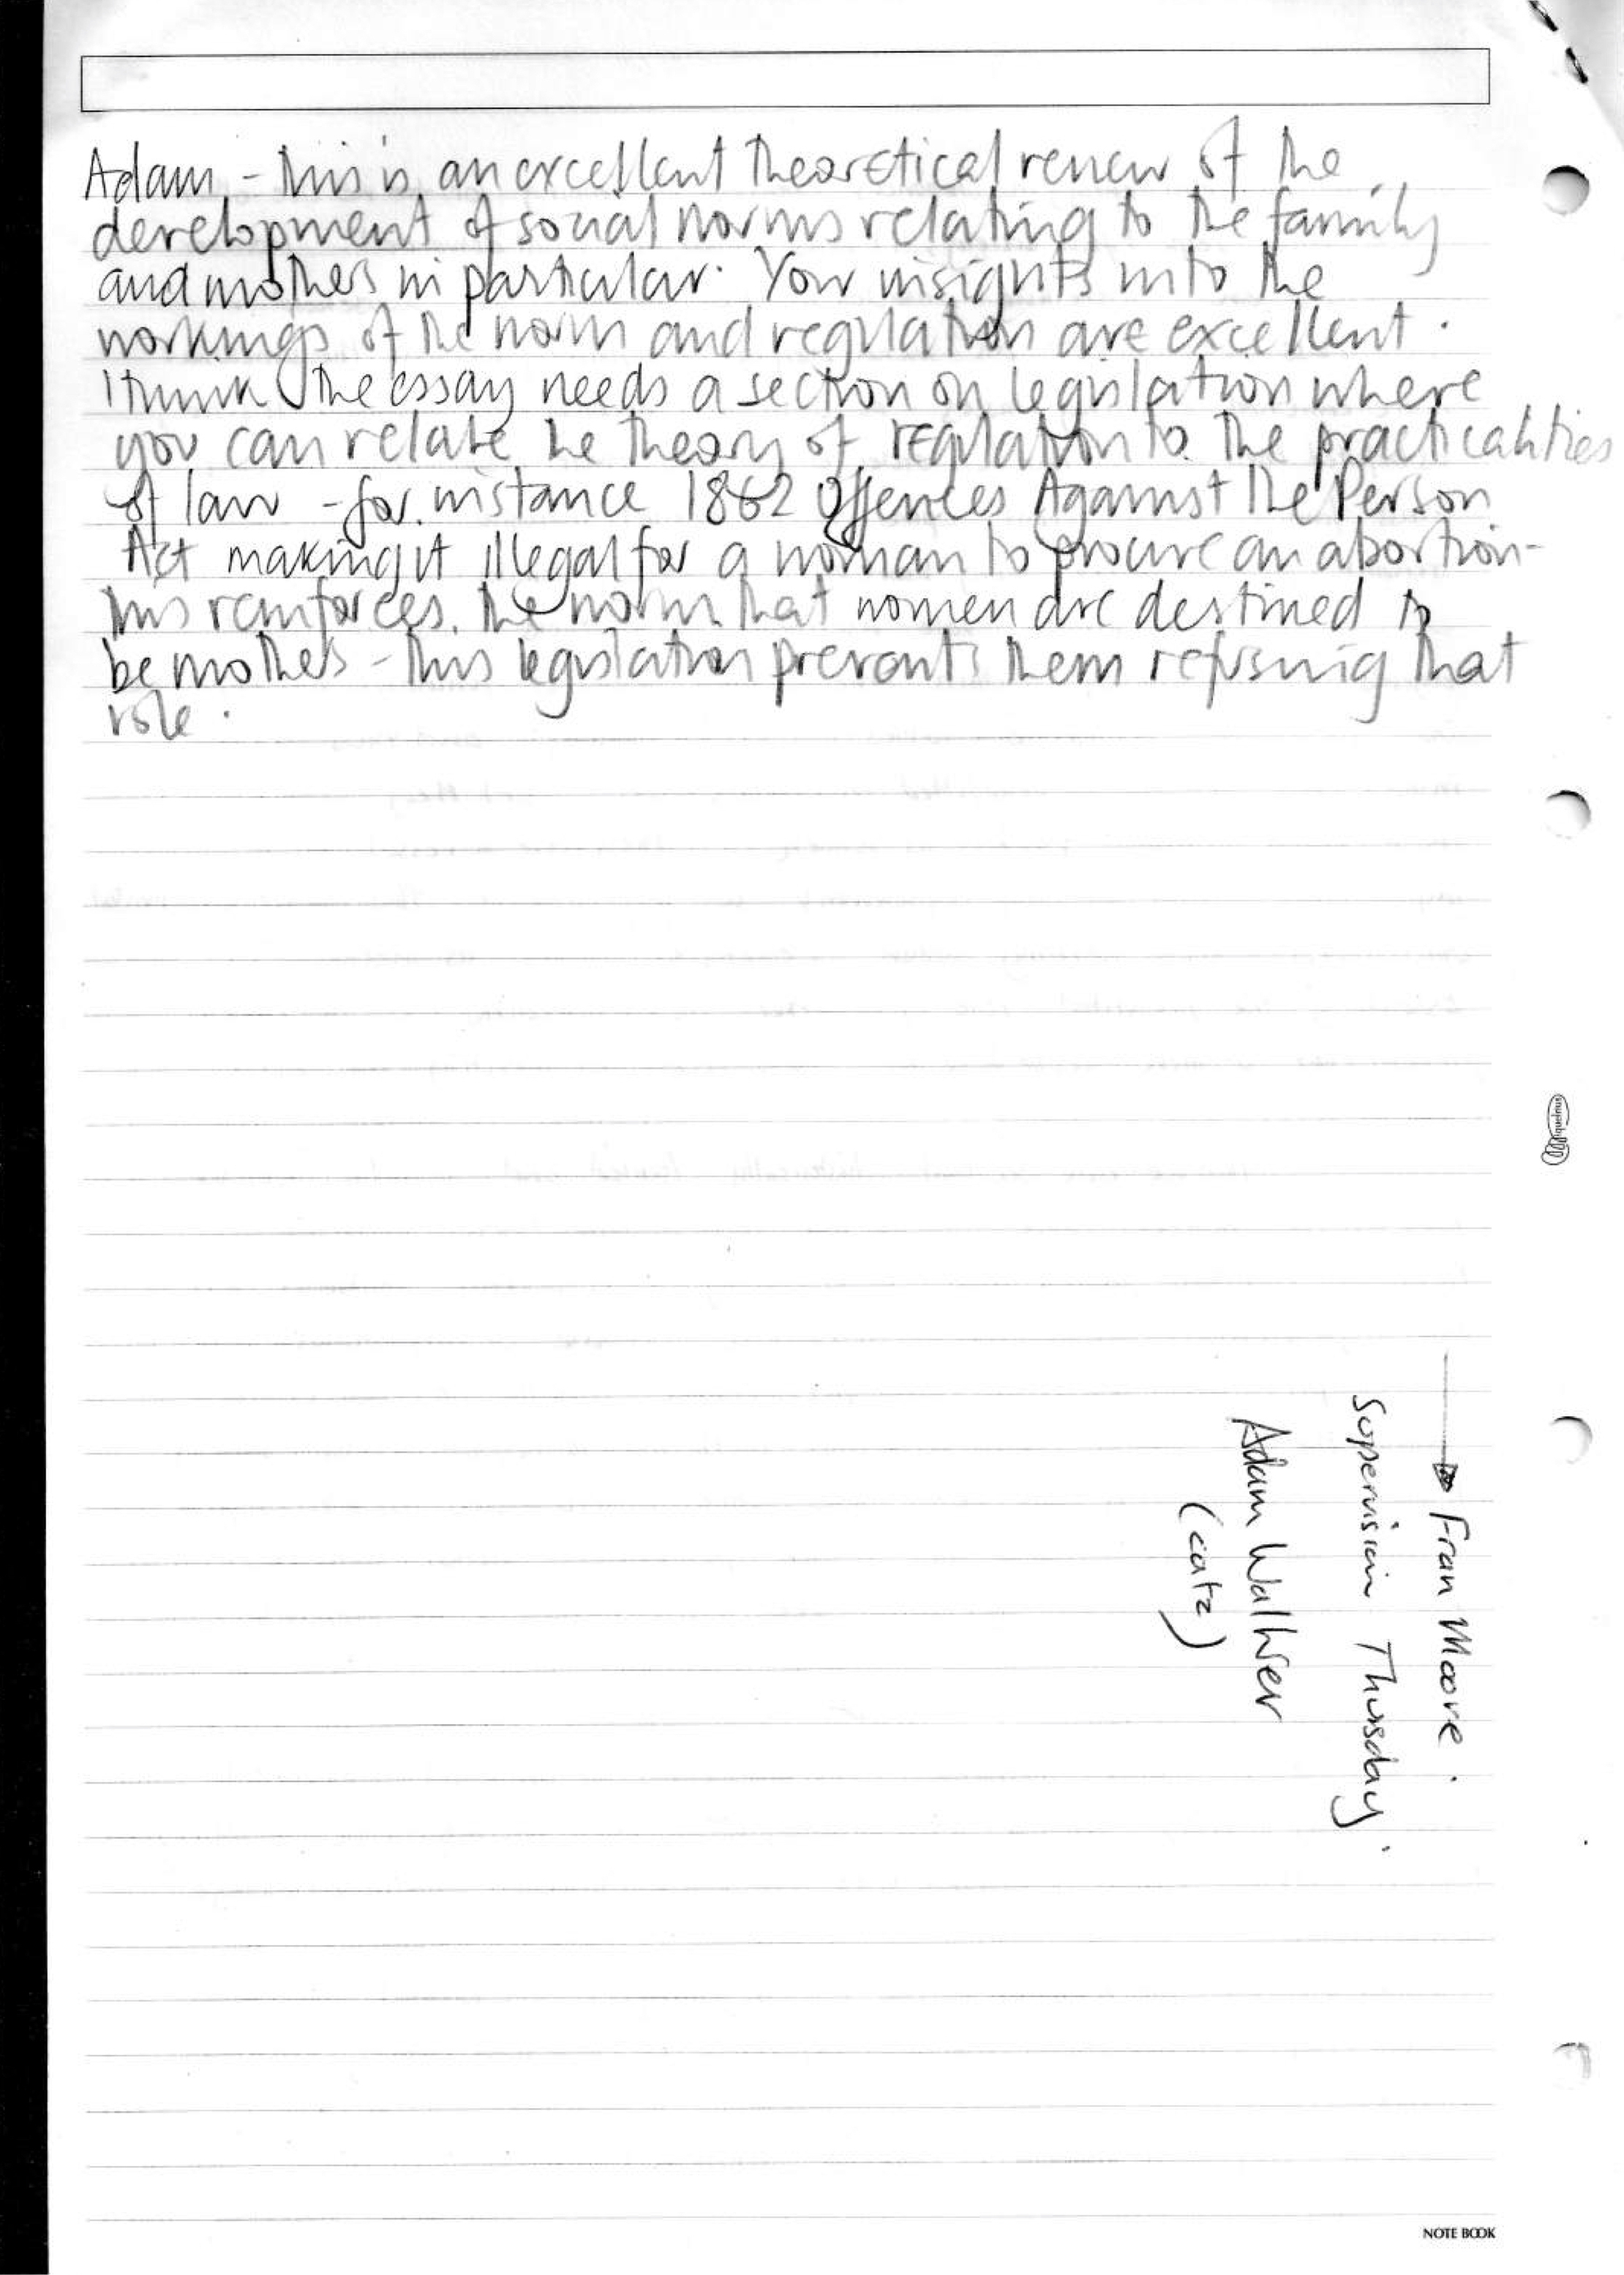 Adam - this is an excellent theoretical review of the
development of social norms relating to the family
and mothers in particular. Your insights into the
workings of the norm and regulation are excellent.
I think the essay needs a section on legislation where
you can relate the theory of regulation to the practicalities
of law - for instance 1862 Offences Against the Person
Act making it illegal for a woman to procure an abortion -
this reinforces the norm that women are destined to
be mothers - this legislation prevents them refusing that
role.
Fran Moore.
Supervision Thursday.
Adam Walker
(catz)
NOTE BOOK